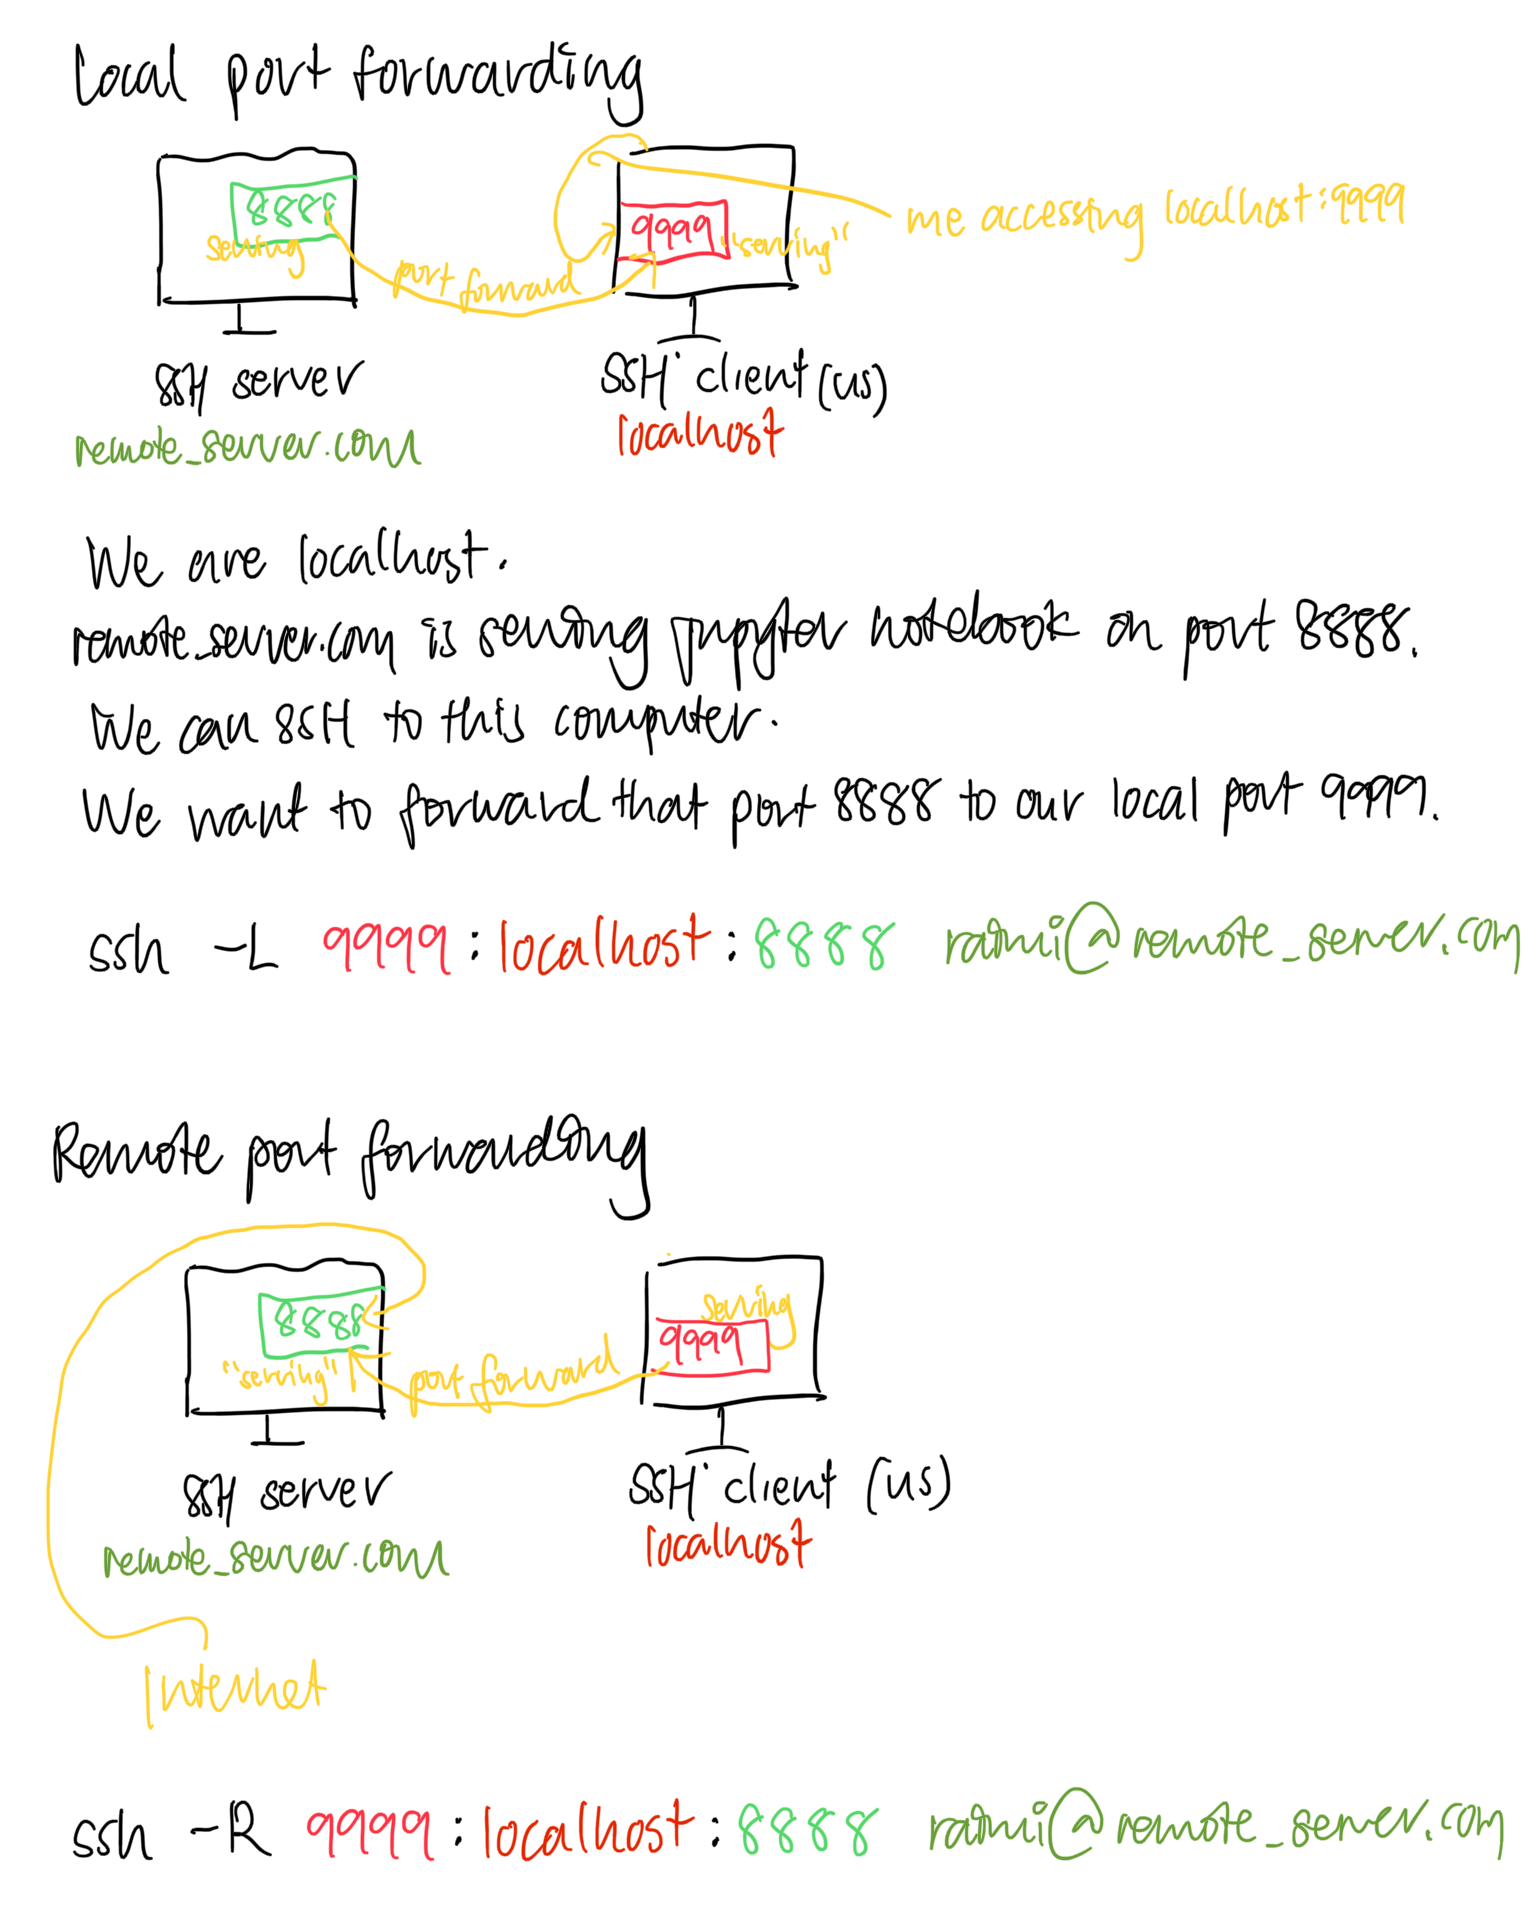 Local port forwarding
8888
serving
9999
"serving"
me accessing localhost:9999
port forward
SSH server
SSH client (us)
remote_server.com
localhost
We are localhost.
remote_server.com is serving jupyter notebook on port 8888.
We can SSH to this computer.
We want to forward that port 8888 to our local port 9999.
ssh -L 9999:localhost:8888 raimi@remote_server.com
Remote port forwarding
8888
"serving"
serving
9999
port forward
SSH server
SSH client (us)
remote_server.com
localhost
Internet
ssh -R 9999:localhost:8888 raimi@remote_server.com